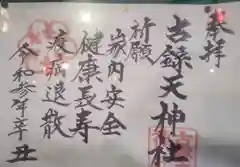 奉拝
古録天神社
祈願
家内安全
健康長寿
疫病退散
令和参年辛
丑